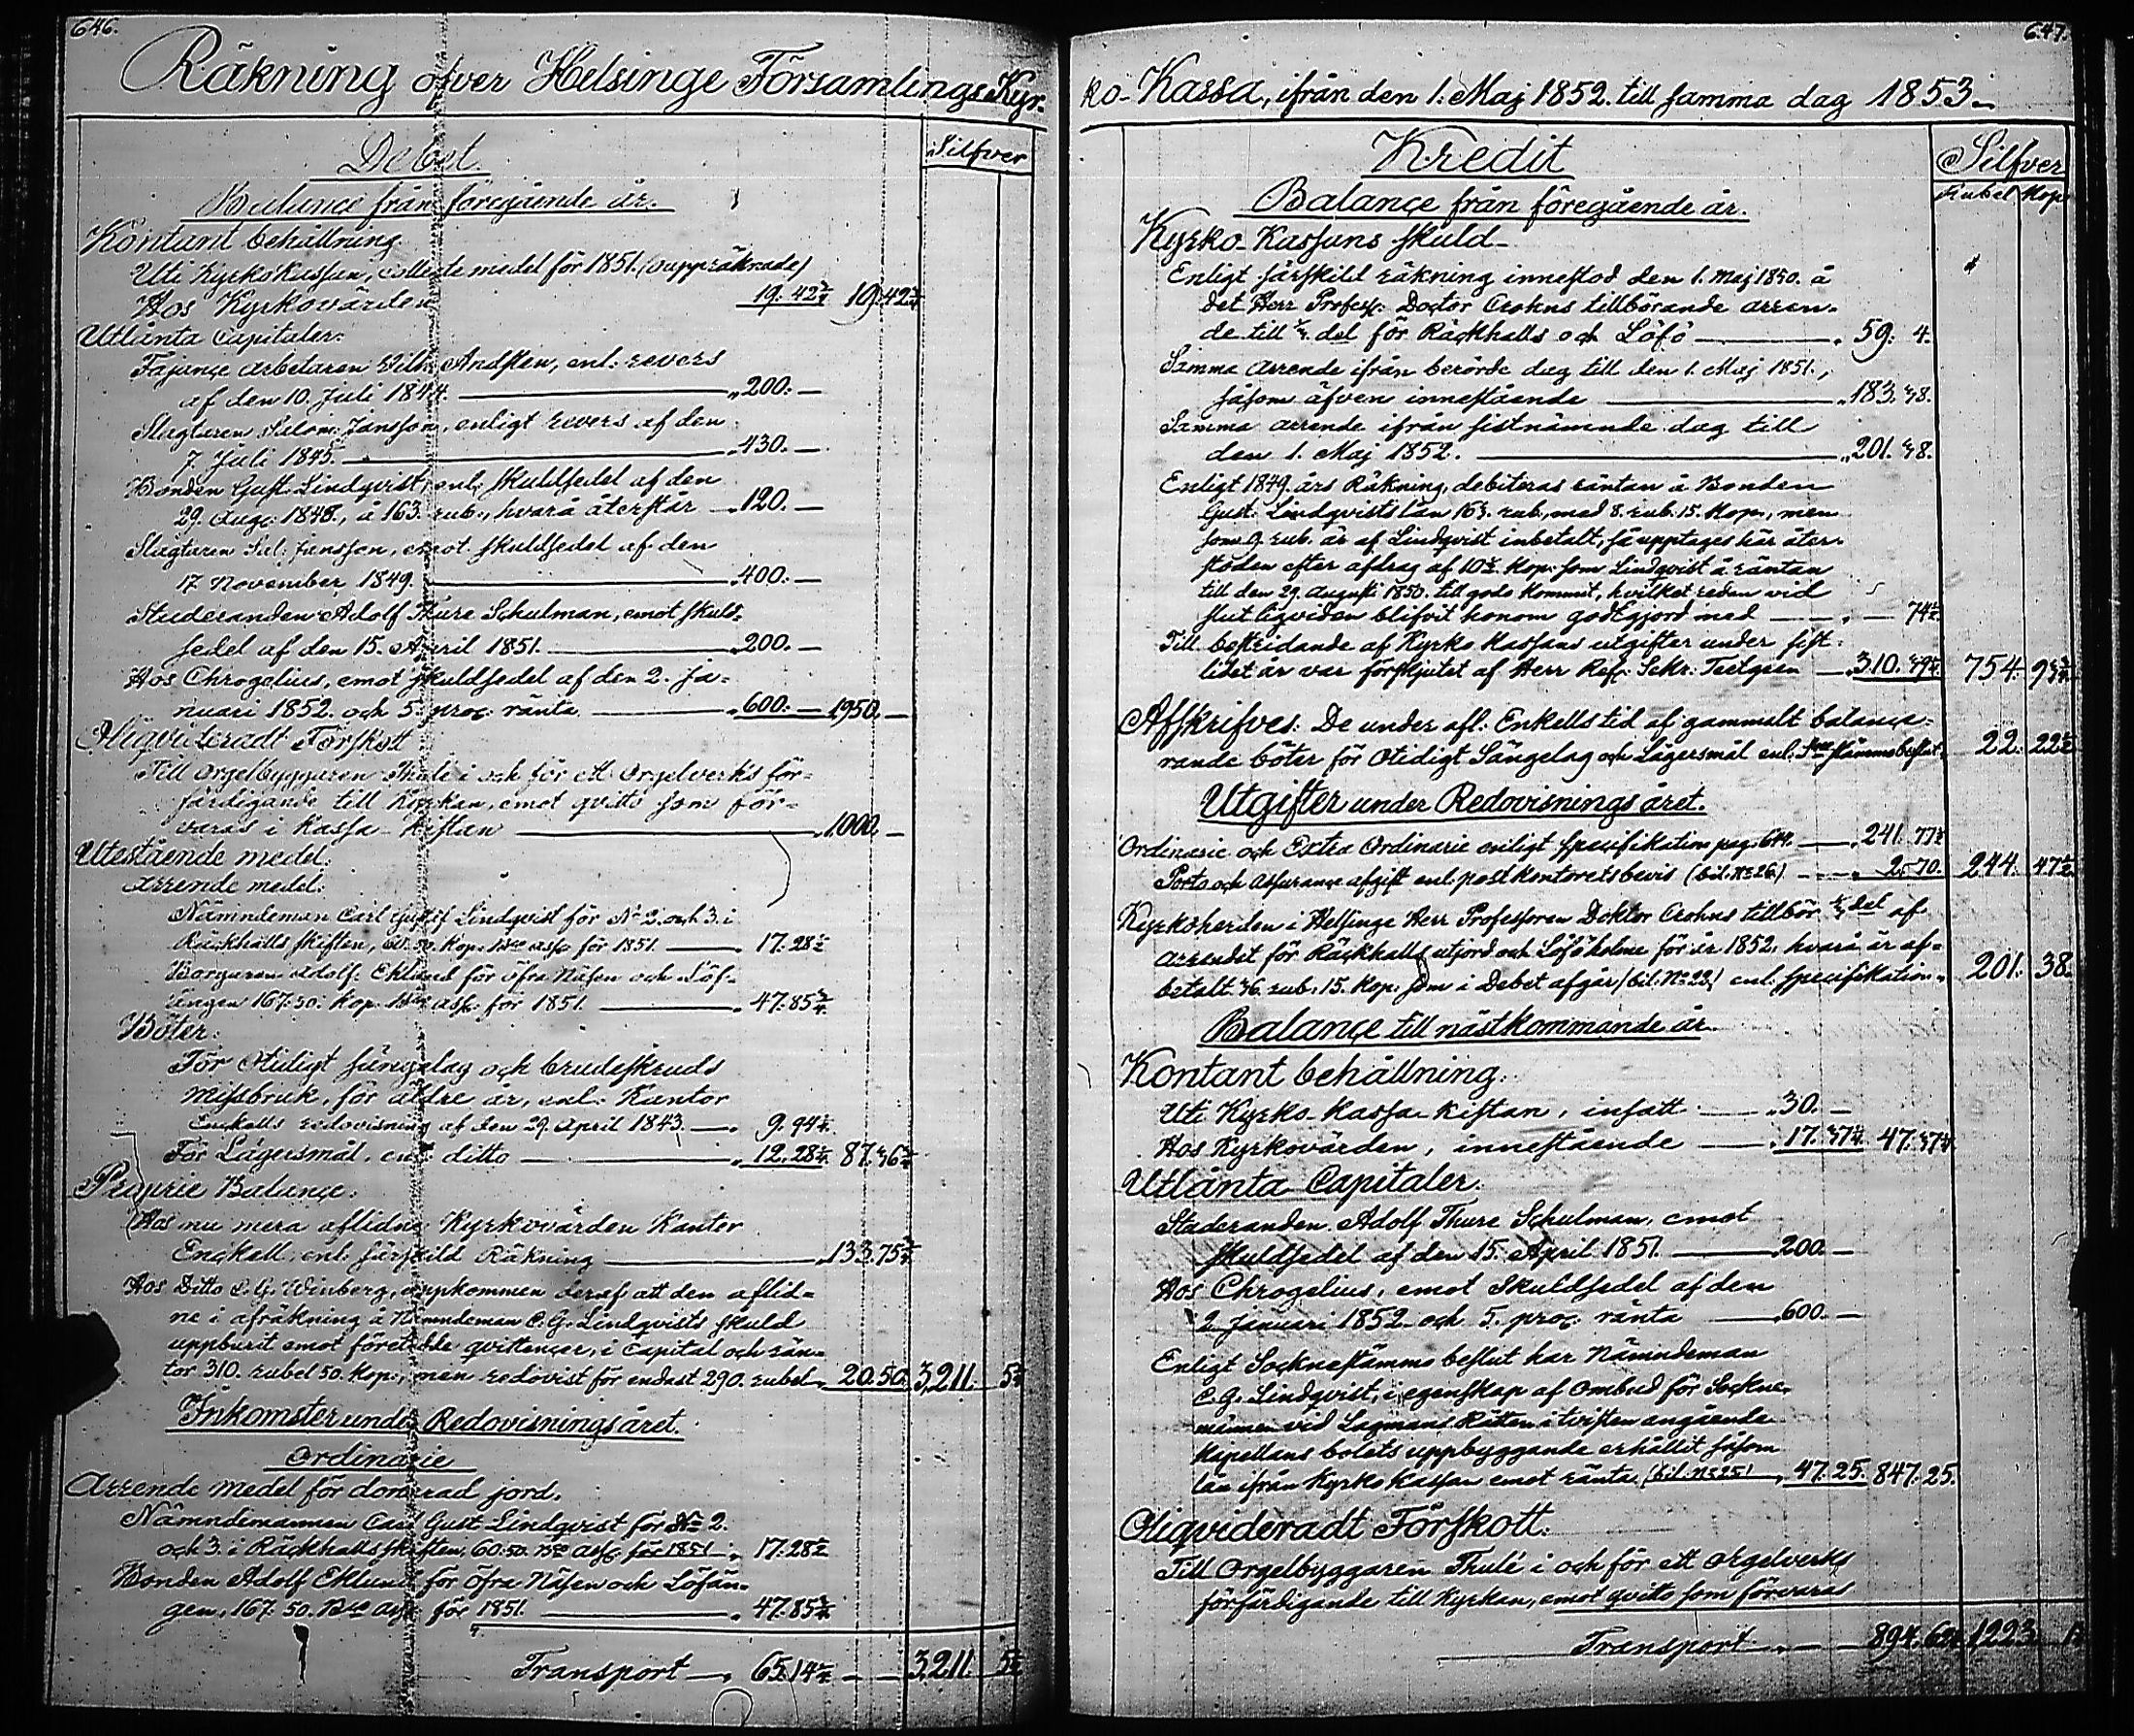 646.
Räkning öfver Helsinge Församlings Kyr-
Debet
Silfver
Balançe från föregående år.
Kontant behållning
Uti Kyrko Kassan, collecte medel för 1851. (ouppräknade)
Hos Kyrkovärden 19. 42 19. 42
Utlånta Capitaler:
Fajançe arbetaren Vilh. Andsten, enl. revers
af den 10. Juli 1844. 200. —
Slagtaren Salom. Jansson, enligt revers af den
7. Juli 1845. 430. —
Bonden Gust. Lindqvist, enl. skuldsedel af den
29. Aug. 1848., å 163. rub., hvarå återstår 120. —
Slagtaren Sal: Jansson, emot skuldsedel af den
17 November 1849. 400. —
Studeranden Adolf Thure Schulman, emot skuld-
sedel af den 15. April 1851. 200. —
Hos Chrogelius, emot skuldsedel af den 2. Ja-
nuari 1852. och 5. proç. ränta 600. — 1950. —
Oliqvideradt Förskott
Till Orgelbyggaren Thulé i och för ett Orgelverks för-
färdigande till Kyrkan, emot qvitto som för-
varas i Kassa-Kistan 1000. —
Utestående medel:
Arrende medel:
Nämndeman Carl Gustaf Lindqvist för No 2. och 3. i
Räckhalls skiften, 60. 50. Kop. Bco ass. för 1851. 17. 28
Borgaren Adolf Eklund för Öfra Näsen och Löf-
ängen 167. 50. Kop. Bco ass. för 1851. 47. 85
Böter:
För Otidigt sängelag och brudeskruds
missbruk, för äldre år, enl. Kantor
Enckells redovisning af den 29. April 1843. 9. 94
För Lägersmål, enl. ditto 12. 28 87. 36
Proprie Balançe:
Hos nu mera aflidne Kyrkovärden Kantor
Enckell, enl. särskild Räkning 133. 75
Hos Ditto C. G. Winberg, uppkommen deraf att den aflid-
ne i afräkning å Nämndeman C. G. Lindqvists skuld
uppburit emot företedde qvittençer, i Capital och rän-
tor 310. rubel 50. Kop., men redovist för endast 290. rubel 20. 50. 3,211. 5
Inkomster under Redovisningsåret.
Ordinarie
Arrende medel för donerad jord.
Nämndemannen Carl Gust. Lindqvist för No 2.
och 3. i Räckhalls skiften, 60. 50. Bco ass. för 1851. 17. 28
Bonden Adolf Eklund för Öfra Näsen och Löfän-
gen, 167. 50. Bco ass. för 1851. 47. 85
Transport 65. 14 3,211. 5
647.
ko-Kassa, ifrån den 1. Maj 1852. till samma dag 1853.
Kredit
Silfver
Rubel Kop.
Balançe från föregående år.
Kyrko-Kassans skuld
Enligt särskild räkning innestod den 1. Maj 1850. å
det Herr Profess. Doctor Crohns tillhörande arren-
de till del för Räckhalls och Löfö 59. 4.
Samma arrende ifrån berörde dag till den 1. Maj 1851.,
såsom äfven innestående 183. 38.
Samma arrende ifrån sistnämnde dag till
den 1. Maj 1852. 201. 38.
Enligt 1849. års Räkning, debiteras räntan å Bonden
Gust. Lindqvists lån 163. rub., med 8. rub. 15. Kop., men
som 9. rub. är af Lindqvist inbetalt, så upptages här åter-
stoden efter afdrag af 10½ Kop. som Lindqvist å räntan
till den 29. Augusti 1850. till godo kommit, hvilket redan vid
slut liqviden blifvit honom godtgjord med — 74½
Till bestridande af Kyrko Kassans utgifter under sist-
lidet år var förskjutet af Herr Ref. Sekr. Teetgren 310. 39 754. 93
Afskrifves: De under afl. Enkells tid af gammalt balançe-
rande böter för Otidigt Sängelag och Lägersmål enl. Stämmobeslut 22. 22½
Utgifter under Redovisningsåret.
Ordinarie och Extra Ordinarie enligt specifikation pag. 644. 241. 77½
Porto och assurançe afgift enl. postkontorets bevis (bil. No 26.) 2. 70. 244. 47½
Kyrkoherden i Helsinge Herr Professoren Doktor Crohns tillhör del af
arrendet för Räckhalls utjord och Löföholme för år 1852, hvarå är af-
betalt 36. rub. 15. Kop. som i Debet afgår (bil. No 22) enl. specifikation 201. 38.
Balançe till nästkommande år.
Kontant behållning:
Uti Kyrko kassa kistan, insatt 30. —
Hos Kyrkovärden, innestående 17. 37 47. 37
Utlånta Capitaler.
Studeranden Adolf Thure Schulman, emot
skuldsedel af den 15. April 1851. 200. —
Hos Chrogelius, emot Skuldsedel af den
2. Januari 1852 och 5. proç. ränta 600. —
Enligt Sockne stämmo beslut har Nämndeman
C. G. Lindqvist, i egenskap af ombud för Sockne-
männen vid Lagmans Rätten i tvisten angående
Kapellans bolets uppbyggande erhållit såsom
lån ifrån Kyrko Kassan emot ränta (bil. No 25) 47. 25. 847. 25.
Oliqvideradt Förskott.
Till Orgelbyggaren Thulé i och för ett orgelverks
förfärdigande till Kyrkan, emot qvitto som förvaras
Transport 894. 62 1223.